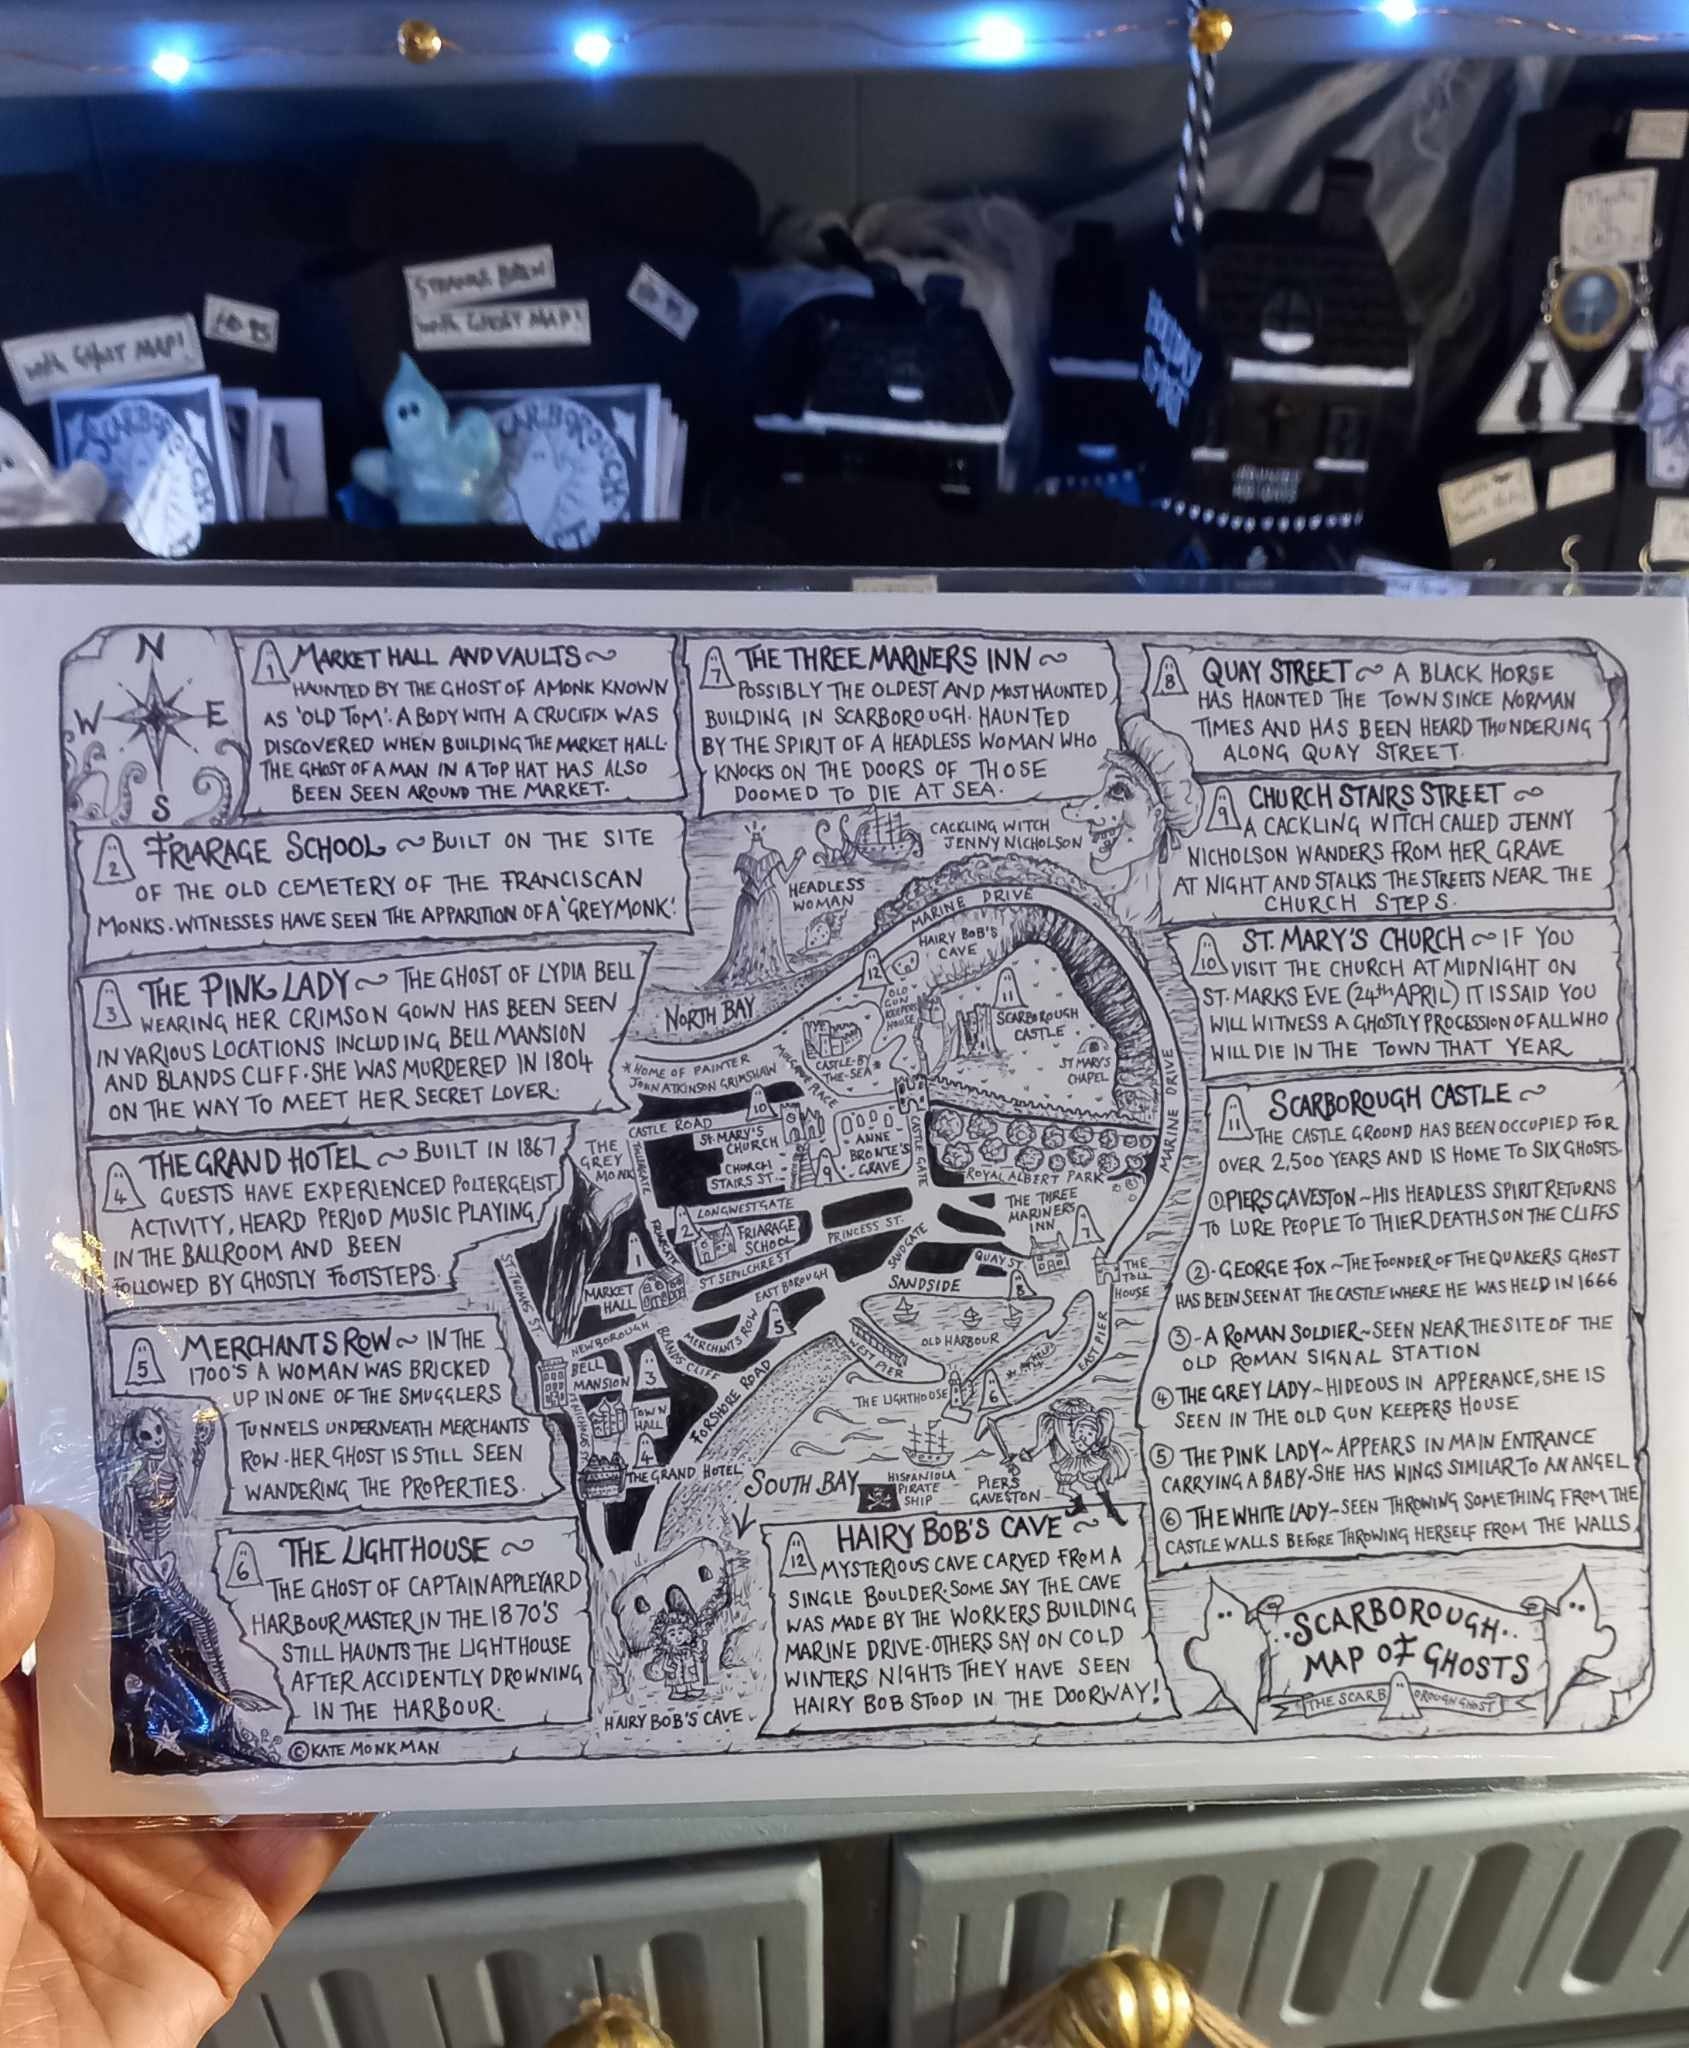 with GHOST MAP!
STRANGE BREW!
with GHOST MAP!
SCARBOROUGH
SCARBOROUGH
N
W E
S
1 MARKET HALL AND VAULTS ~
HAUNTED BY THE GHOST OF A MONK KNOWN
AS 'OLD TOM'. A BODY WITH A CRUCIFIX WAS
DISCOVERED WHEN BUILDING THE MARKET HALL.
THE GHOST OF A MAN IN A TOP HAT HAS ALSO
BEEN SEEN AROUND THE MARKET.
2 FRIARAGE SCHOOL ~ BUILT ON THE SITE
OF THE OLD CEMETERY OF THE FRANCISCAN
MONKS. WITNESSES HAVE SEEN THE APPARITION OF A 'GREY MONK'.
3 THE PINK LADY ~ THE GHOST OF LYDIA BELL
WEARING HER CRIMSON GOWN HAS BEEN SEEN
IN VARIOUS LOCATIONS INCLUDING BELL MANSION
AND BLANDS CLIFF. SHE WAS MURDERED IN 1804
ON THE WAY TO MEET HER SECRET LOVER.
4 THE GRAND HOTEL ~ BUILT IN 1867
GUESTS HAVE EXPERIENCED POLTERGEIST
ACTIVITY, HEARD PERIOD MUSIC PLAYING
IN THE BALLROOM AND BEEN
FOLLOWED BY GHOSTLY FOOTSTEPS.
5 MERCHANTS ROW ~ IN THE
1700'S A WOMAN WAS BRICKED
UP IN ONE OF THE SMUGGLERS
TUNNELS UNDERNEATH MERCHANTS
ROW. HER GHOST IS STILL SEEN
WANDERING THE PROPERTIES.
6 THE LIGHTHOUSE ~
THE GHOST OF CAPTAIN APPLEYARD
HARBOUR MASTER IN THE 1870'S
STILL HAUNTS THE LIGHTHOUSE
AFTER ACCIDENTLY DROWNING
IN THE HARBOUR.
©KATE MONKMAN
7 THE THREE MARINERS INN ~
POSSIBLY THE OLDEST AND MOST HAUNTED
BUILDING IN SCARBOROUGH. HAUNTED
BY THE SPIRIT OF A HEADLESS WOMAN WHO
KNOCKS ON THE DOORS OF THOSE
DOOMED TO DIE AT SEA.
CACKLING WITCH
JENNY NICHOLSON
HEADLESS
WOMAN
MARINE DRIVE
HAIRY BOB'S
CAVE
12
NORTH BAY
OLD
GUN
KEEPERS
HOUSE
11
SCARBOROUGH
CASTLE
ST MARY'S
CHAPEL
MARINE DRIVE
*HOME OF PAINTER
JOHN ATKINSON GRIMSHAW
MULGRAVE PLACE
CASTLE-BY
THE-SEA*
10
CASTLE ROAD
ST. MARY'S
CHURCH
CHURCH
STAIRS ST.
9
ANNE
BRONTE'S
GRAVE
CASTLE GATE
ROYAL ALBERT PARK
THE
GREY
MONK
LONGWESTGATE
2
FRIARAGE
SCHOOL
PRINCESS ST.
FRIARGATE
ST SEPULCHRE ST
THE THREE
MARINERS
INN
7
SANDGATE
QUAY ST
8
SANDSIDE
THE
TOLL
HOUSE
ST. THOMAS ST.
1
MARKET
HALL
EAST BOROUGH
NEWBOROUGH
MERCHANTS ROW
5
BLANDS CLIFF
BELL
MANSION
3
TOWN
HALL
4
THE GRAND HOTEL
FORSHORE ROAD
WEST PIER
OLD HARBOUR
EAST PIER
THE LIGHTHOUSE
6
SOUTH BAY
HISPANIOLA
PIRATE
SHIP
PIERS
GAVESTON
HAIRY BOB'S CAVE
12 HAIRY BOB'S CAVE ~
MYSTERIOUS CAVE CARVED FROM A
SINGLE BOULDER. SOME SAY THE CAVE
WAS MADE BY THE WORKERS BUILDING
MARINE DRIVE. OTHERS SAY ON COLD
WINTERS NIGHTS THEY HAVE SEEN
HAIRY BOB STOOD IN THE DOORWAY!
8 QUAY STREET ~ A BLACK HORSE
HAS HAONTED THE TOWN SINCE NORMAN
TIMES AND HAS BEEN HEARD THUNDERING
ALONG QUAY STREET.
9 CHURCH STAIRS STREET ~
A CACKLING WITCH CALLED JENNY
NICHOLSON WANDERS FROM HER GRAVE
AT NIGHT AND STALKS THE STREETS NEAR THE
CHURCH STEPS.
10 ST. MARY'S CHURCH ~ IF YOU
VISIT THE CHURCH AT MIDNIGHT ON
ST. MARKS EVE (24th APRIL) IT IS SAID YOU
WILL WITNESS A GHOSTLY PROCESSION OF ALL WHO
WILL DIE IN THE TOWN THAT YEAR
11 SCARBOROUGH CASTLE ~
THE CASTLE GROUND HAS BEEN OCCUPIED FOR
OVER 2,500 YEARS AND IS HOME TO SIX GHOSTS.
① PIERS GAVESTON ~ HIS HEADLESS SPIRIT RETURNS
TO LURE PEOPLE TO THIER DEATHS ON THE CLIFFS
②. GEORGE FOX ~ THE FOONDER OF THE QUAKERS GHOST
HAS BEEN SEEN AT THE CASTLE WHERE HE WAS HELD IN 1666
③ - A ROMAN SOLDIER ~ SEEN NEAR THE SITE OF THE
OLD ROMAN SIGNAL STATION
④ THE GREY LADY ~ HIDEOUS IN APPERANCE, SHE IS
SEEN IN THE OLD GUN KEEPERS HOUSE
⑤ THE PINK LADY ~ APPEARS IN MAIN ENTRANCE
CARRYING A BABY. SHE HAS WINGS SIMILAR TO AN ANGEL
⑥ THE WHITE LADY ~ SEEN THROWING SOMETHING FROM THE
CASTLE WALLS BEFORE THROWING HERSELF FROM THE WALLS
·SCARBOROUGH··
MAP OF GHOSTS
THE SCARBOROUGH GHOST